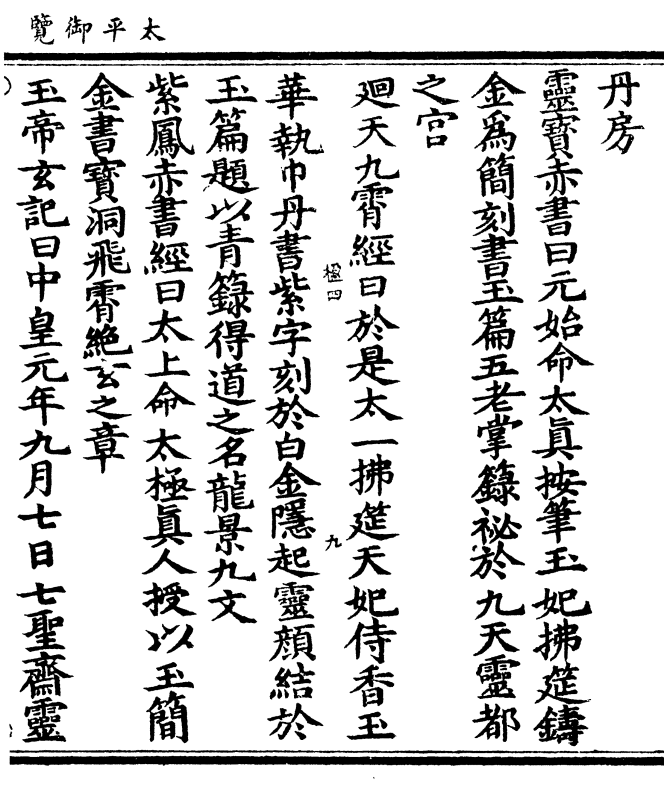 太平御覽
丹房
靈寶赤書曰元始命太眞按筆玉妃拂筵鑄
金爲簡刻書玉篇五老掌籙祕於九天靈都
之宫
廻天九霄經曰於是太一拂筵天妃侍香玉
楹四
九
華執巾丹書紫字刻於白金隱起靈顔結於
玉篇題以青籙得道之名龍景九文
紫鳳赤書經曰太上命太極眞人授以玉簡
金書寶洞飛霄絶玄之章
玉帝玄記曰中皇元年九月七日七聖齋靈